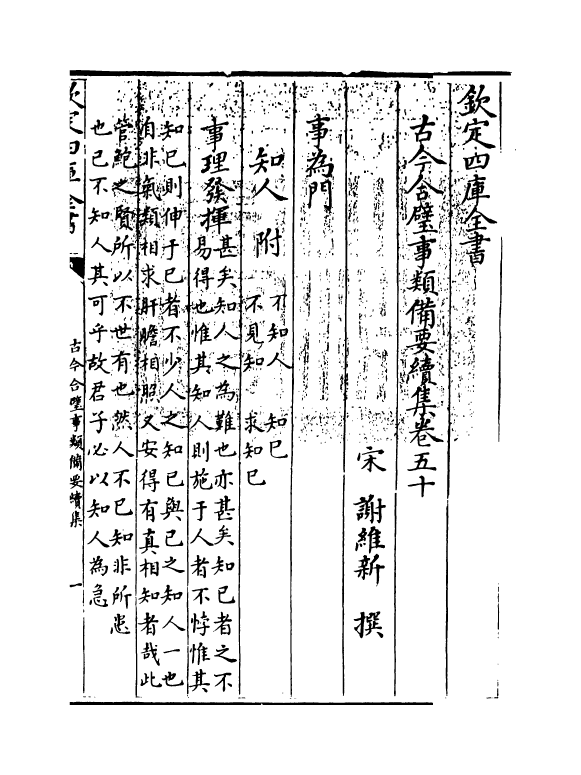 欽定四庫全書
古今合璧事類備要續集卷五十
宋 謝維新 撰
事為門
知人 附
不知人 知已
不見知 求知已
事理發揮
甚矣知人之為難也亦甚矣知已者之不
易得也惟其知人則施于人者不悖惟其
知已則伸于已者不少人之知已與已之知人一也
自非氣類相求肝膽相照又安得有真相知者哉此
管鮑之賢所以不世有也然人不已知非所患
也已不知人其可乎故君子必以知人為急
欽定四庫全書
古今合璧事類備要續集
一